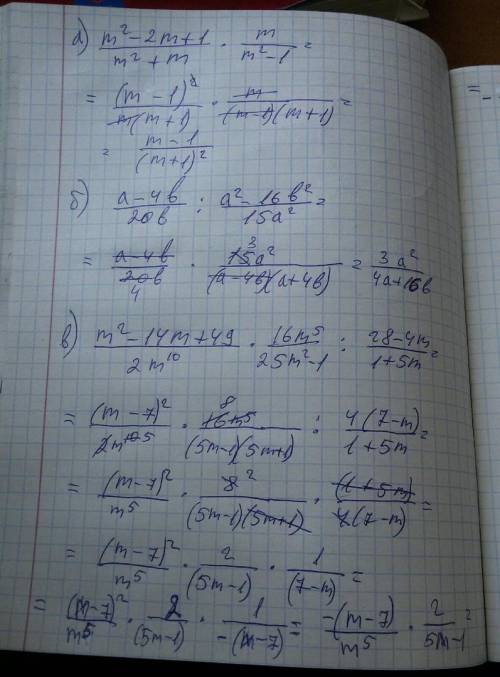 а) (m² - 2m + 1)/(m² + m) · m/(m² - 1) =
= (m - 1)²/(m(m + 1)) · m/((m - 1)(m + 1)) =
= (m - 1)/(m + 1)²
б) (a - 4b)/(20b) : (a² - 16b²)/(15a²) =
= (a - 4b)/(20b) 4 · 3 15a²/((a - 4b)(a + 4b)) = 3a²/(4a + 16b)
в) (m² - 14m + 49)/(2m¹⁰) · 16m⁵/(25m² - 1) : (28 - 4m)/(1 + 5m) =
= (m - 7)²/(2m¹⁰ ⁵) · 8 16m⁵/((5m - 1)(5m + 1)) : 4(7 - m)/(1 + 5m) =
= (m - 7)²/m⁵ · 8 2/((5m - 1)(5m + 1)) · (1 + 5m)/(4(7 - m)) =
= (m - 7)²/m⁵ · 2/(5m - 1) · 1/(7 - m) =
= (m - 7)²/m⁵ · 2/(5m - 1) · 1/(-(m - 7)) = -(m - 7)/m⁵ · 2/(5m - 1) =